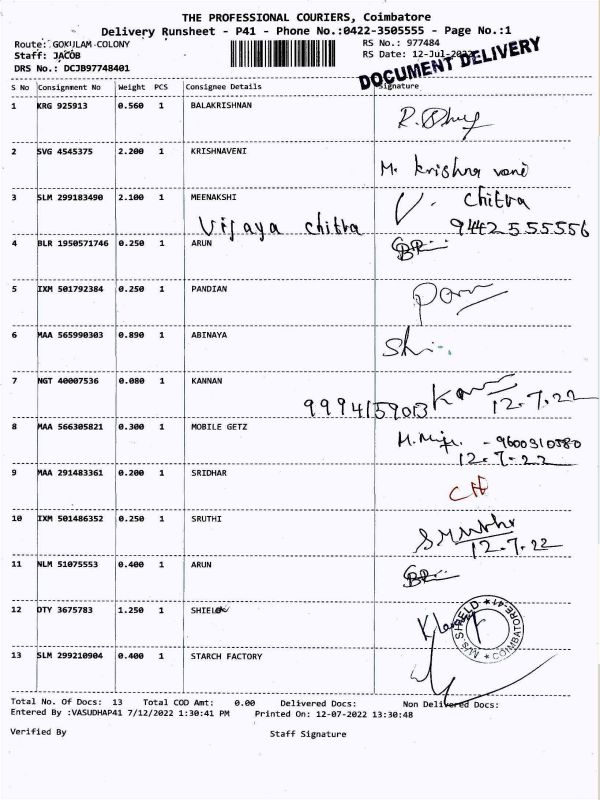 THE PROFESSIONAL COURIERS, Coimbatore
Delivery Runsheet - P41 - Phone No.:0422-3505555 - Page No.:1
Route: GOKULAM COLONY RS No.: 977484
Staff: JACOB RS Date: 12-Jul-2022
DRS No.: DCJB97748401 DOCUMENT DELIVERY
S No Consignment No Weight PCS Consignee Details Signature
1 KRG 925913 0.560 1 BALAKRISHNAN
2 SVG 4545375 2.200 1 KRISHNAVENI
M. Krishna vani
3 SLM 299183490 2.100 1 MEENAKSHI V. Chitra
Vijaya chitra 9442555556
4 BLR 1950571746 0.250 1 ARUN
5 IXM 501792384 0.250 1 PANDIAN
6 MAA 565990303 0.890 1 ABINAYA
7 NGT 40007536 0.080 1 KANNAN
9994159013 12-7-22
8 MAA 566305821 0.300 1 MOBILE GETZ
- 9600310580
12-7-22
9 MAA 291483361 0.200 1 SRIDHAR
CH
10 IXM 501486352 0.250 1 SRUTHI
12-7-22
11 NLM 51075553 0.400 1 ARUN
12 DTY 3675783 1.250 1 SHIELD
M/S SHIELD * COIMBATORE-41 *
13 SLM 299210904 0.400 1 STARCH FACTORY
Total No. Of Docs: 13 Total COD Amt: 0.00 Delivered Docs: Non Delivered Docs:
Entered By :VASUDHAP41 7/12/2022 1:30:41 PM Printed On: 12-07-2022 13:30:48
Verified By Staff Signature